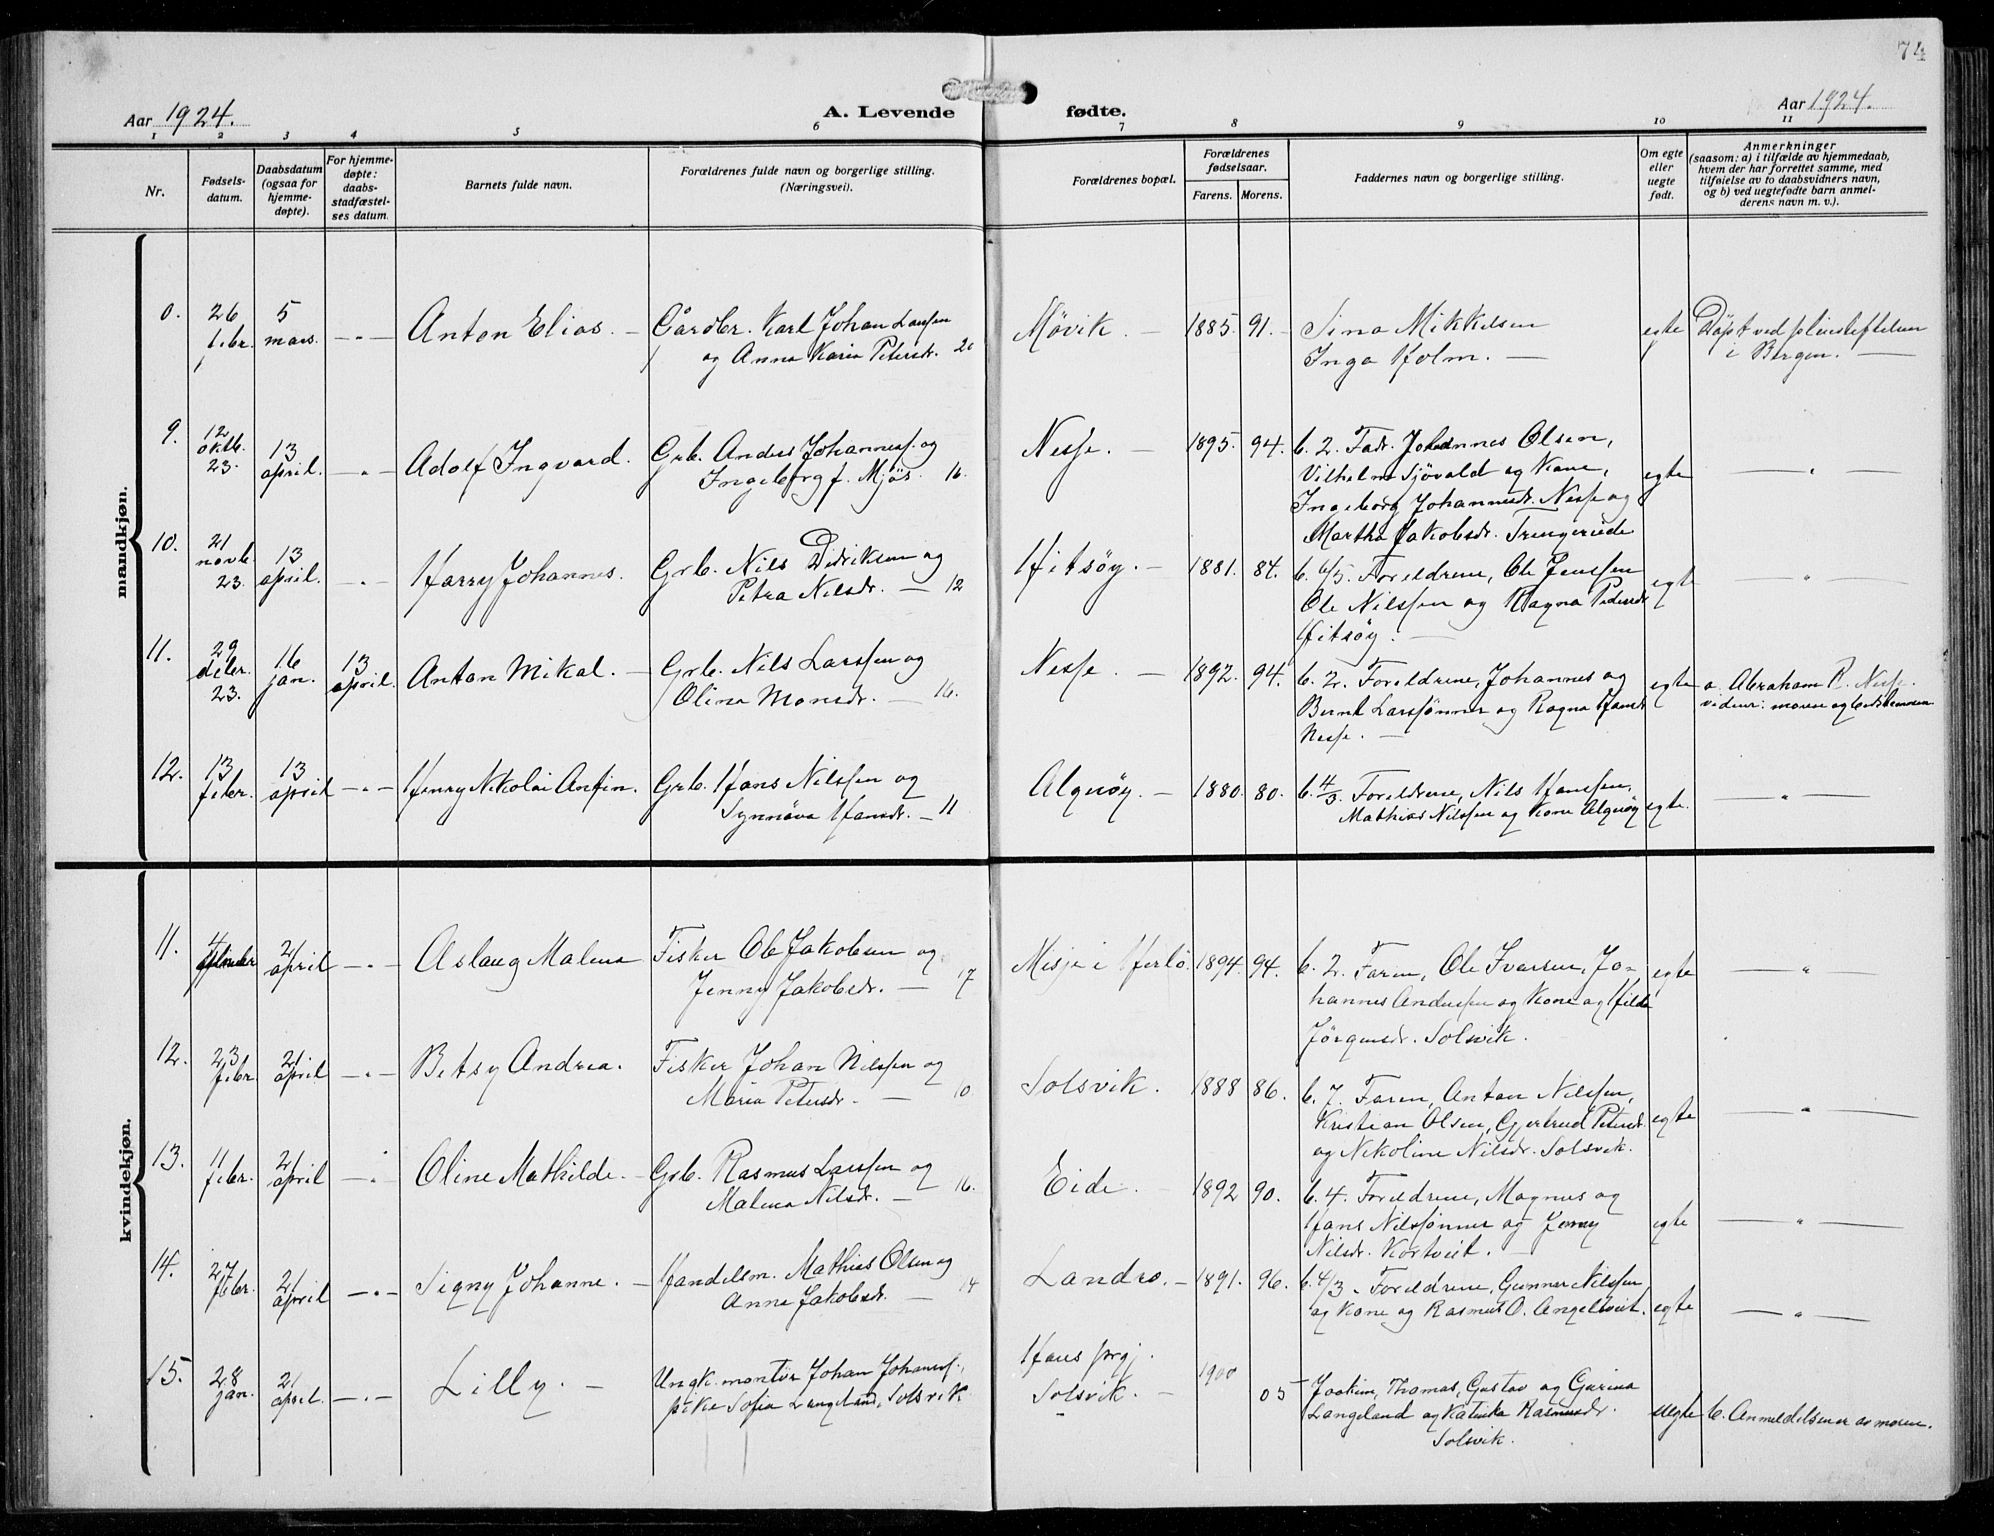 74
Aar 1924.
A. Levende fødte.
Aar 1924.
1 2 3 4 5 6 7 8 9 10 11
Nr.
Fødsels-
datum.
Daabsdatum
(ogsaa for
hjemme-
døpte).
For hjemme-
døpte:
daabs-
stadfæstel-
ses datum.
Barnets fulde navn.
Forældrenes fulde navn og borgerlige stilling.
(Næringsvei).
Forældrenes bopæl.
Forældrenes
fødselsaar.
Farens. Morens.
Faddernes navn og borgerlige stilling.
Om egte
eller
uegte
født.
Anmerkninger
(saasom: a) i tilfælde av hjemmedaab,
hvem der har forrettet samme, med
tilføielse av to daabsvidners navn,
og b) ved uegtefødte barn anmel-
derens navn m. v.).
mandkjøn.
0. 26 febr. 5 mars. — " — Anton Elias. — Gårdbr. Karl Johan Larssen
og Anna Karia Petersdr. 20
Møvik. — 1885. 91. Sina Mikkelsen
Inga Holm. —
egte Døpt ved pleiestiftelsen
i Bergen. —
9. 12 oktb. 23. 13 april. — " — Adolf Ingvard. Grb. Anders Johanness. og
Ingeborg f. Mjøs. 16.
Nesse. — 1895. 94. b. 2. Fadr. Johannes Olsen,
Vilhelm Sjövald og Kone,
Ingeborg Johannesdr. Nesse og
Martha Jakobsdr. Trengereide
egte — " —
10. 21 novb. 23. 13 april. — " — Harry Johannes. Grb. Nils Didriksen og
Petra Nilsdr. — 12
Hitsöy. — 1881. 84. b. 6/5. Foreldrene, Ole Jenssen
Ole Nilssen og Ragna Pedersdr
Hitsöy. —
egte — " —
11. 29 deber. 23. 16 jan. 13 april. Anton Mikal. — Grb. Nils Larssen og
Olina Monsdr. — 16.
Nesse. — 1892. 94. b. 2. Foreldrene, Johannes og
Bernt Larssønner og Ragna Hansdr
Nesse. —
egte a. Abraham R. Nesse.
vidner: moren og bedstemoren
12. 13 feber. 13 april — " — Henry Nikolai Anfin. Grb. Hans Nilssen og
Synnöva Hansdr. — 11
Algröy. — 1880. 80. b. 4/3. Foreldrene, Nils Hanssen,
Mathias Nilssen og Kone Algröy
egte. — " —
kvindekjøn.
11. 4 2/ april — " — Aslaug Malena Fisker Ole Jakobsen og
Jenny Jakobsdr. — 17
Misje i Herlö. 1894. 94. b. 2. Faren, Ole Ivarsen, Jo-
hannes Anderssen og Kone og Hilda
Jörgensdr. Solsvik.
egte — " —
12. 23 febr. 2/ april — " — Betsy Andrea. Fisker Johan Nilssen og
Maria Petersdr. — 10
Solsvik. 1888 86. b. 7. Faren, Anton Nilssen,
Kristian Olsen, Gjertrud Petersdr.
og Nikoline Nilsdr. Solsvik.
egte — " —
13. 11 febr. 2/ april — " — Oline Mathilde. — Grb. Rasmus Larssen og
Malena Nilsdr. — 16.
Eide. — 1892 90. b. 4. Foreldrene, Magnus og
Hans Nilssønner og Jenny
Nilsdr. Kortveit. —
egte — " —
14. 27 febr. 2/ april — " — Signy Johanne. — Handelsm. Mathias Olsen og
Anna Jakobsdr. — 14
Landro. — 1891. 96. b. 4/3. Foreldrene, Gunnar Nilssen
og Kone og Rasmus O. Angeltveit.
egte — " —
15. 28 jan. 2/ april. — " — Lilly. — Ungk. montör Johan Johaness.,
pike Sofia Langeland, Solsvik
Hans
Solsvik. — 1900 05 Joakim, Thomas, Gustav og Gurina
Langeland og Katinka Rasmusdr.
Solsvik.
uegte b. Anmeldelsen er av moren.